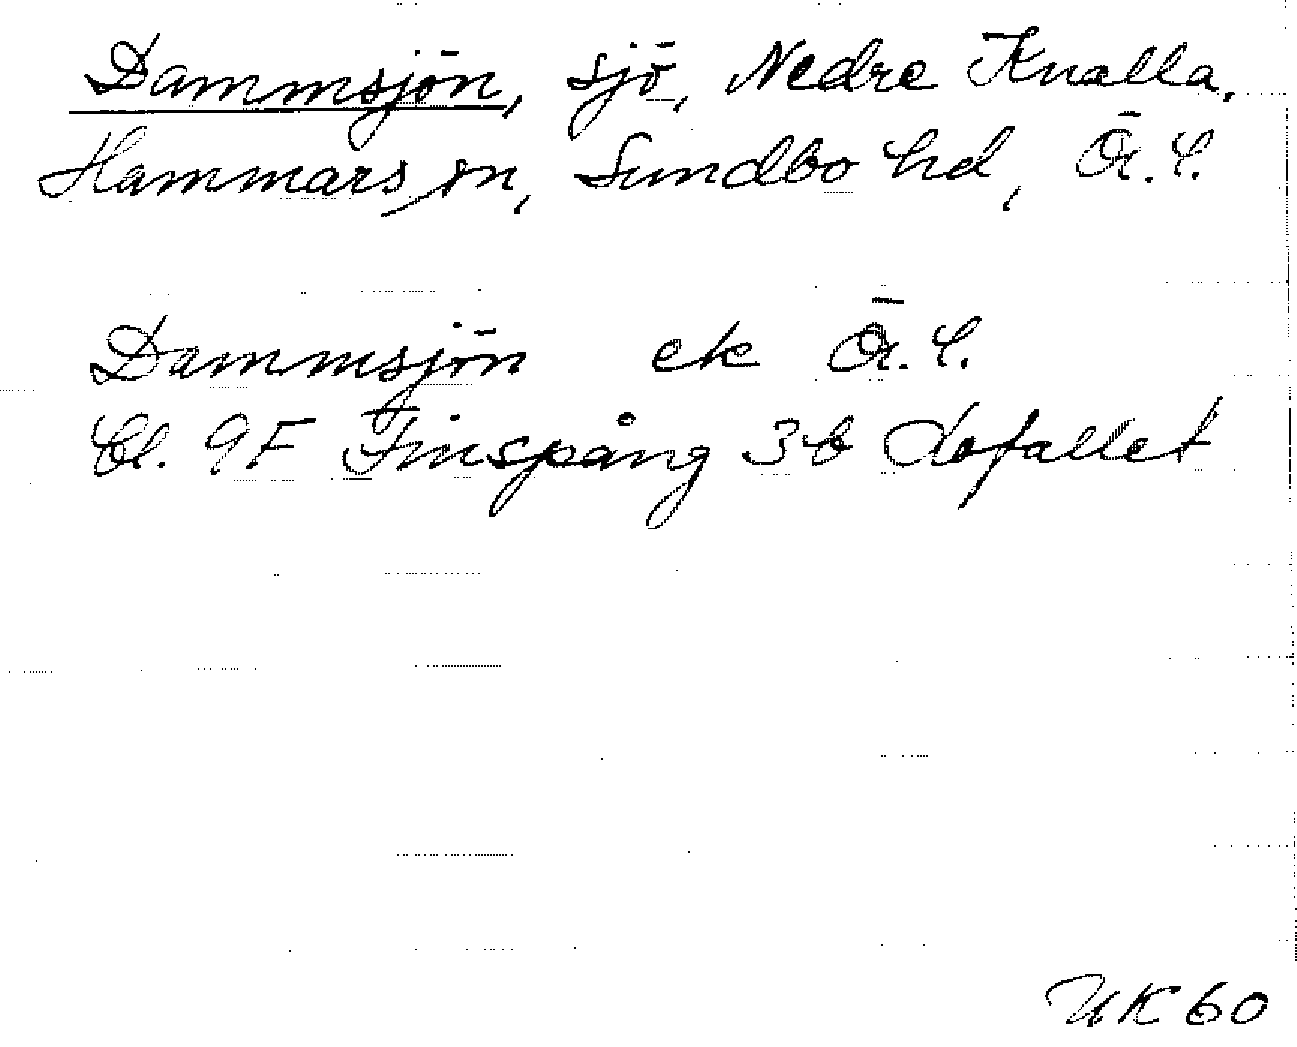 Dammsjön, sjö, Nedre Knalla,
Hammars sn, Sundbo hd, Ö.L.
Dammsjön ek Ö.L.
bl. 9F Finspång 3b Lofallet
UK60